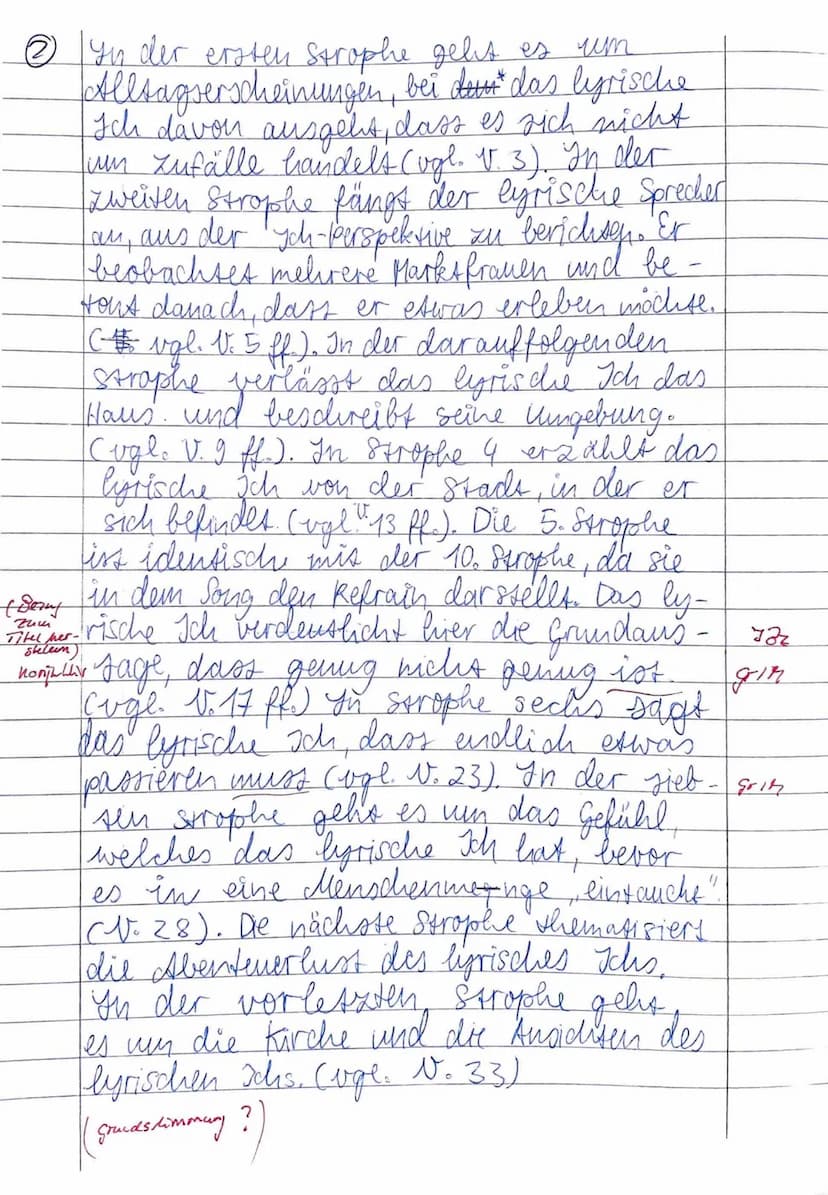 ② In der ersten Strophe geht es um
Alltagserscheinungen, bei * das lyrische
Ich davon ausgeht, dass es sich nicht
um Zufälle handelt (vgl. V. 3). In der
zweiten Strophe fängt der lyrische Sprecher
an, aus der Ich-Perspektive zu berichten. Er
beobachtet mehrere Marktfrauen und be-
tont danach, dass er etwas erleben möchte.
( vgl. V. 5 ff.). In der darauffolgenden
Strophe verlässt das lyrische Ich das
Haus und beschreibt seine Umgebung.
(vgl. V. 9 ff.). In Strophe 4 erzählt das
lyrische Ich von der Stadt, in der er
sich befindet. (vgl. V. 13 ff.). Die 5. Strophe
ist identisch mit der 10. Strophe, da sie
in dem Song den Refrain darstellt. Das ly-
(Bezug zum Titel her-stellen)
rische Ich verdeutlicht hier die Grundaus-
Konjunktiv sage, dass genug nicht genug ist. gr/M
(vgl. V. 17 ff.) In Strophe sechs sagt
das lyrische Ich, dass endlich etwas
passieren muss (vgl. V. 23). In der sieb- gr/M
ten Strophe geht es um das Gefühl,
welches das lyrische Ich hat, bevor
es in eine Menschenmenge „eintauche"
(V. 28). Die nächste Strophe thematisiert
die Abenteuerlust des lyrisches Ichs.
In der vorletzten Strophe geht
es um die Kirche und die Ansichten des
lyrischen Ichs. (vgl. V. 33)
(Grundstimmung?)